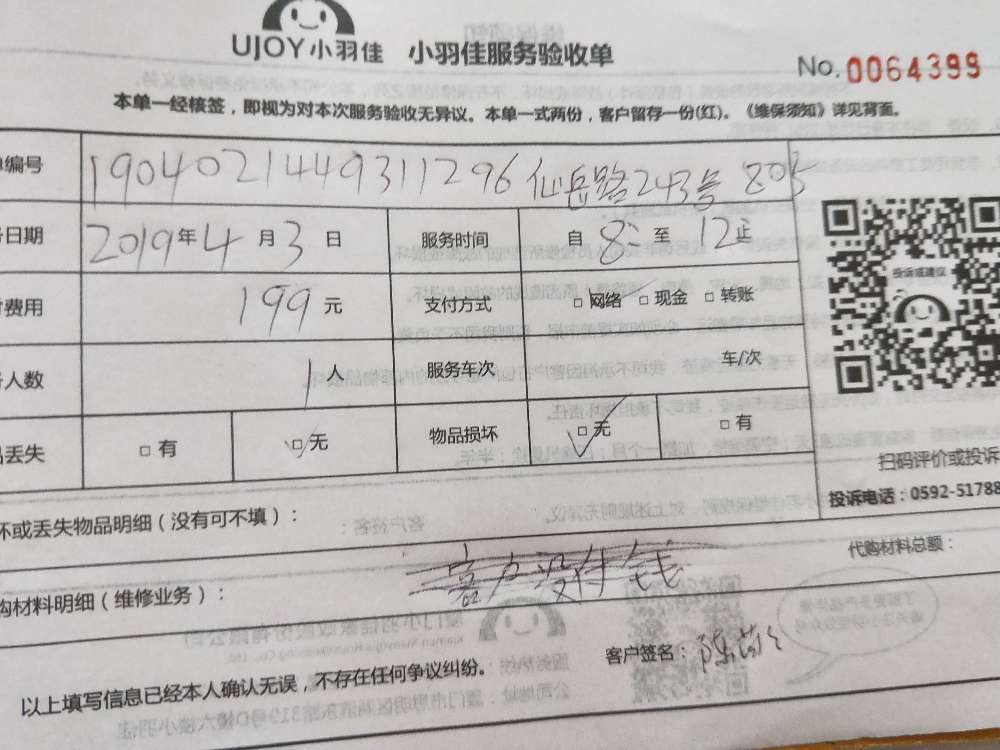 UJOY小羽佳 小羽佳服务验收单
No. 0064399
本单一经核签，即视为对本次服务验收无异议。本单一式两份，客户留存一份(红)。《维保须知》详见背面。
编号 1904021449311296 仙岳路243号 803
日期 2019年4月3日 服务时间 自8:至12止
费用 199元 支付方式 □网络 □现金 □转账
人数 1人 服务车次 车/次
丢失 □有 □无 物品损坏 □无 □有
投诉或建议
扫码评价或投诉
投诉电话：0592-51788
坏或丢失物品明细（没有可不填）：
购材料明细（维修业务）： 客户没付钱 代购材料总额：
以上填写信息已经本人确认无误，不存在任何争议纠纷。 客户签名：